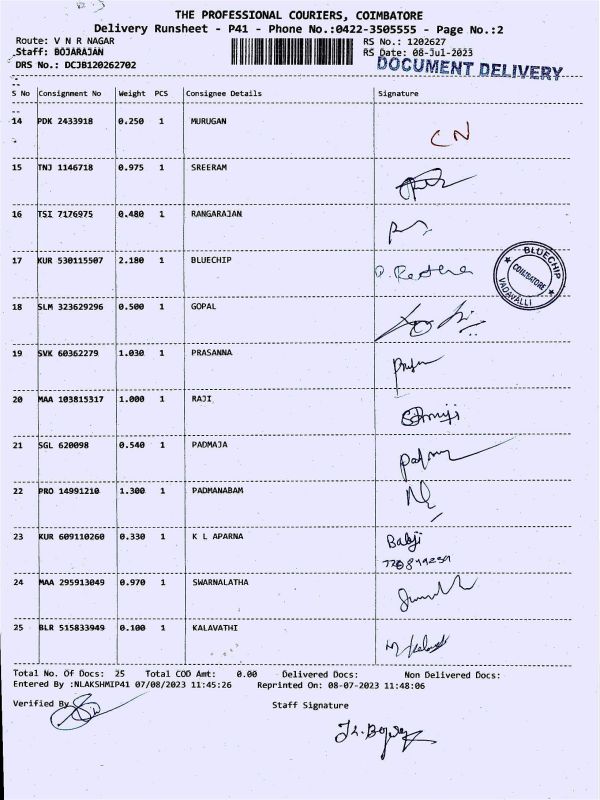 THE PROFESSIONAL COURIERS, COIMBATORE
Delivery Runsheet - P41 - Phone No.:0422-3505555 - Page No.:2
Route: V N R NAGAR RS No.: 1202627
Staff: BOJARAJAN RS Date: 08-Jul-2023
DRS No.: DCJB120262702 DOCUMENT DELIVERY
S No Consignment No Weight PCS Consignee Details Signature
14 PDK 2433918 0.250 1 MURUGAN CN
15 TNJ 1146718 0.975 1 SREERAM
16 TSI 7176975 0.480 1 RANGARAJAN
17 KUR 530115507 2.180 1 BLUECHIP BLUECHIP COIMBATORE VADAVALLI
18 SLM 323629296 0.500 1 GOPAL
19 SVK 60362279 1.030 1 PRASANNA
20 MAA 103815317 1.000 1 RAJI
21 SGL 620098 0.540 1 PADMAJA
22 PRO 14991210 1.300 1 PADMANABAM
23 KUR 609110260 0.330 1 K L APARNA Balaji
24 MAA 295913049 0.970 1 SWARNALATHA
25 BLR 515833949 0.100 1 KALAVATHI
Total No. Of Docs: 25 Total COD Amt: 0.00 Delivered Docs: Non Delivered Docs:
Entered By :NLAKSHMIP41 07/08/2023 11:45:26 Reprinted On: 08-07-2023 11:48:06
Verified By Staff Signature